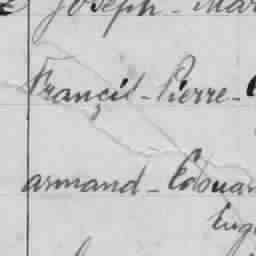 Joseph - Mar
Françil - Pierre -
armand - Edouar
Eug